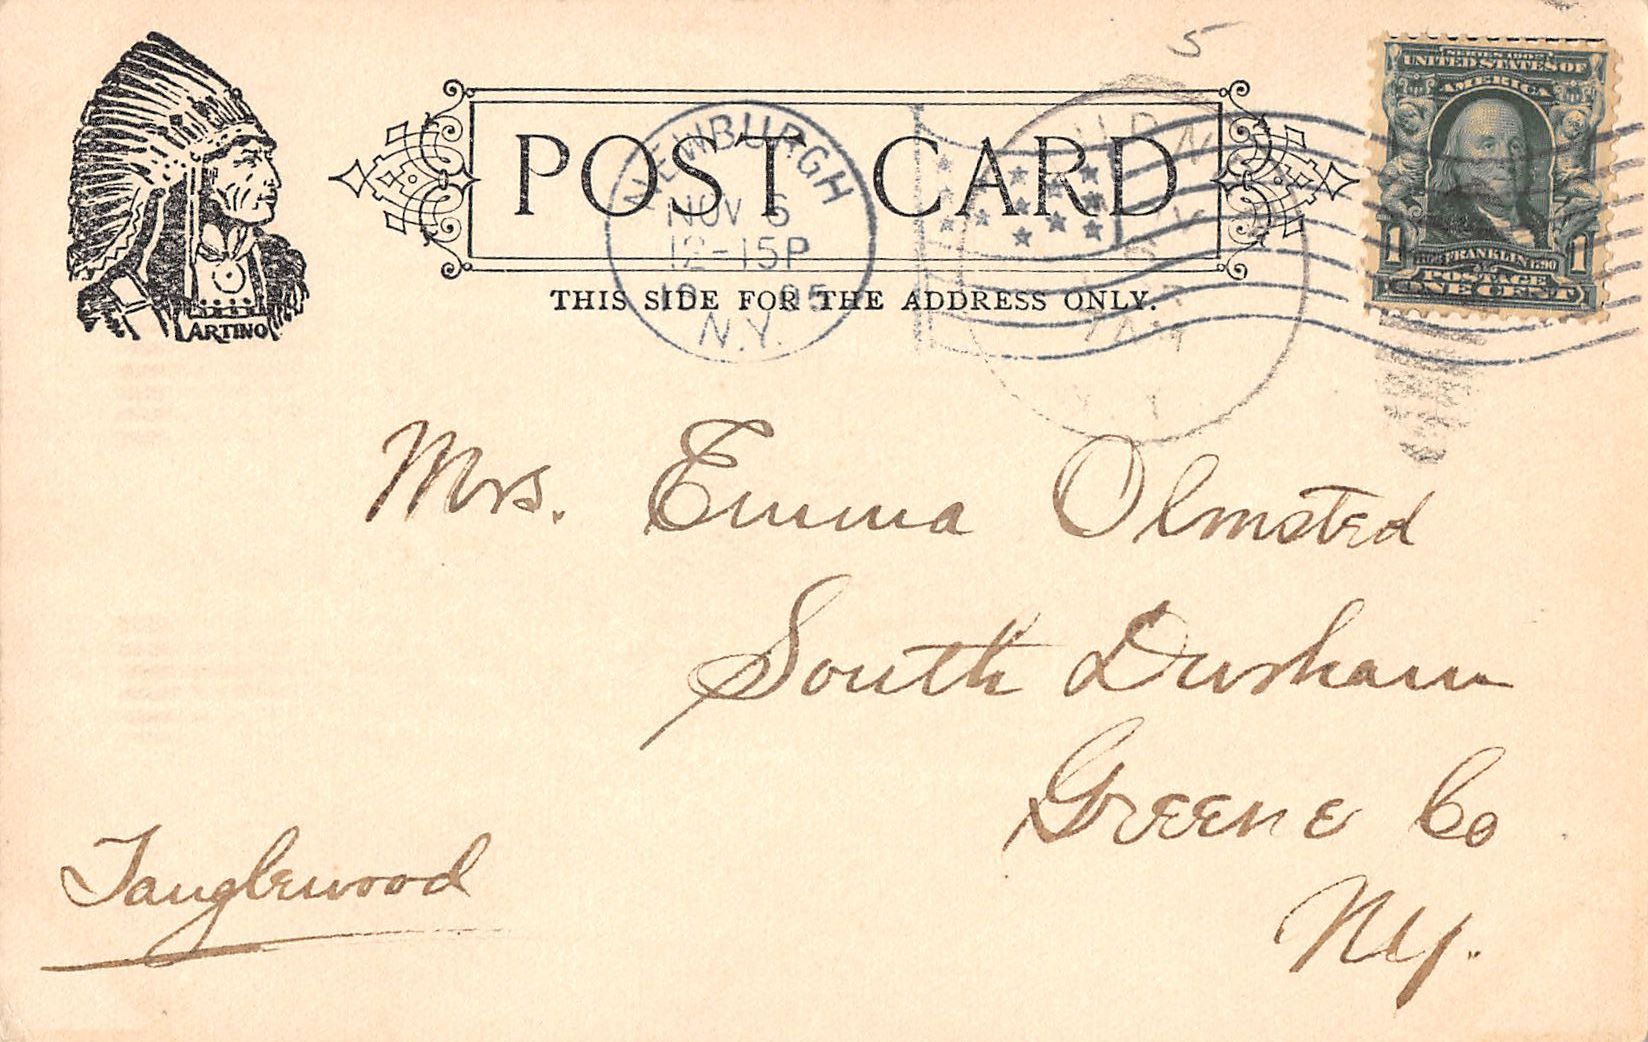 5
SERIES 1902
UNITED STATES OF
AMERICA
POST CARD
NEWBURGH
NOV 6
12-15P
N.Y.
1 FRANKLIN 1
POSTAGE
ONE CENT
THIS SIDE FOR THE ADDRESS ONLY.
ARTINO
Mrs. Emma Olmsted
South Durham
Greene Co
Tanglewood
NY.